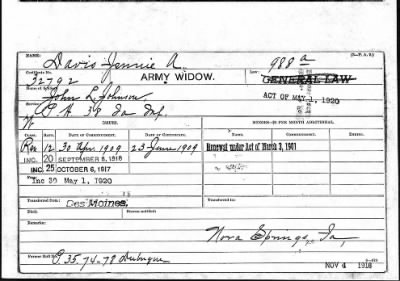 NAME: Davis Jennie A. 988 a
Certificate No. 32792 ARMY WIDOW. Law: GENERAL LAW
ACT OF MAY 1, 1920
John L. Johnson
Service: A 39 Ia Inf.
CLASS. RATE. DATE OF COMMENCEMENT. DATE OF CERTIFICATE.
Ren 12 30 Apr 1909 23 June 1909 Renewal under Act of March 3, 1901
INC. 20 SEPTEMBER 8, 1916
INC. 25 OCTOBER 6, 1917
Inc 30 May 1, 1920
Transferred from: Des Moines.
Died:
Remarks:
Nora Springs, Ia,
Former Roll 35.74-78 Dubuque
NOV 4 1916